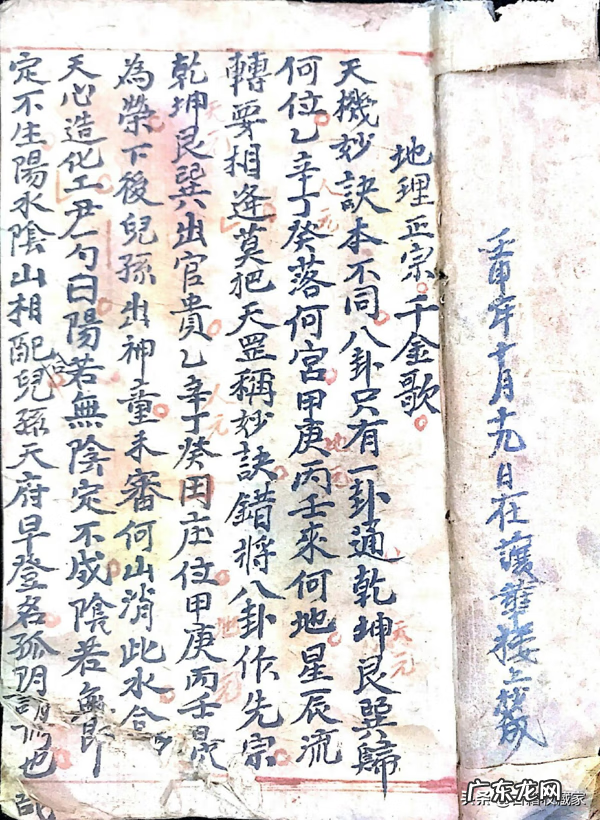 壬申年十月十九日在護華樓上抄成
地理正宗千金歌
天機妙訣本不同八卦只有一卦通乾坤艮巽歸
天元
何位乙辛丁癸落何宮甲庚丙壬來何地星辰流
人元
地元
轉要相逢莫把天罡稱妙訣錯將八卦作先宗
乾坤艮巽出官貴乙辛丁癸田庄位甲庚丙壬最
天元
人元
地元
為榮下後兒孫出神童未審何山消此水合
天心造化工尹勺曰陽若無陰定不成陰若無即
定不生陽水陰山相配合兒孫天府早登名孤陰也
广东龙网